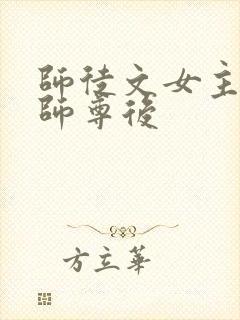 師徒文女主
師尊後
方立華